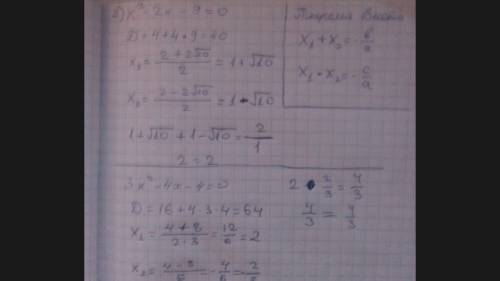 б) x² - 2x - 9 = 0
D = 4 + 4 · 9 = 40
x₁ = (2 + 2√10)/2 = 1 + √10
x₂ = (2 - 2√10)/2 = 1 - √10
1 + √10 + 1 - √10 = 2/1
2 = 2
Теорема Виета
x₁ + x₂ = - b/a
x₁ · x₂ = - c/a
3x² - 4x - 4 = 0
D = 16 + 4 · 3 · 4 = 64
x₁ = (4 + 8)/(2 · 3) = 12/6 = 2
x₂ = (4 - 8)/6 = - 4/6 = 2/3
2 · 2/3 = 4/3
4/3 = 4/3